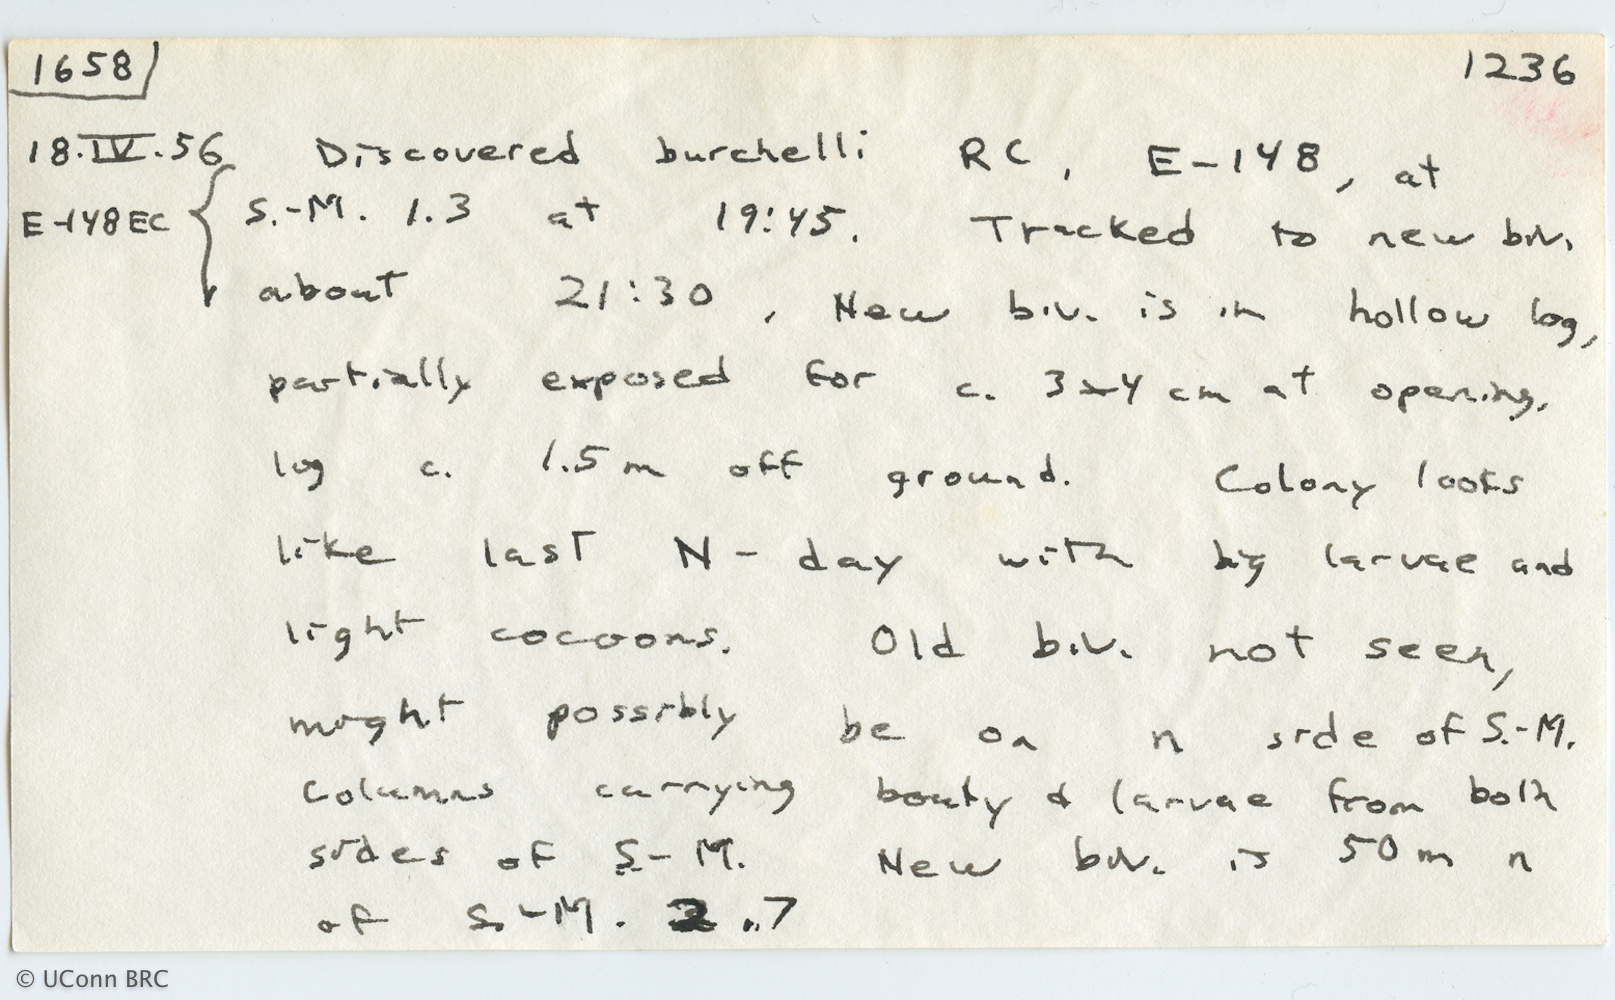 1658 1236
18.IV.56 Discovered burchelli RC, E-148, at
E-148EC S.-M. 1.3 at 19:45. Tracked to new biv.
about 21:30, New biv. is in hollow log,
partially exposed for c. 3x4 cm at opening,
log c. 1.5 m off ground. Colony looks
like last N-day with big larvae and
light cocoons. Old biv. not seen,
might possibly be on n side of S.-M.
Columns carrying booty & larvae from both
sides of S-M. New biv. is 50 m n
of S.-M. 2.7
© UConn BRC